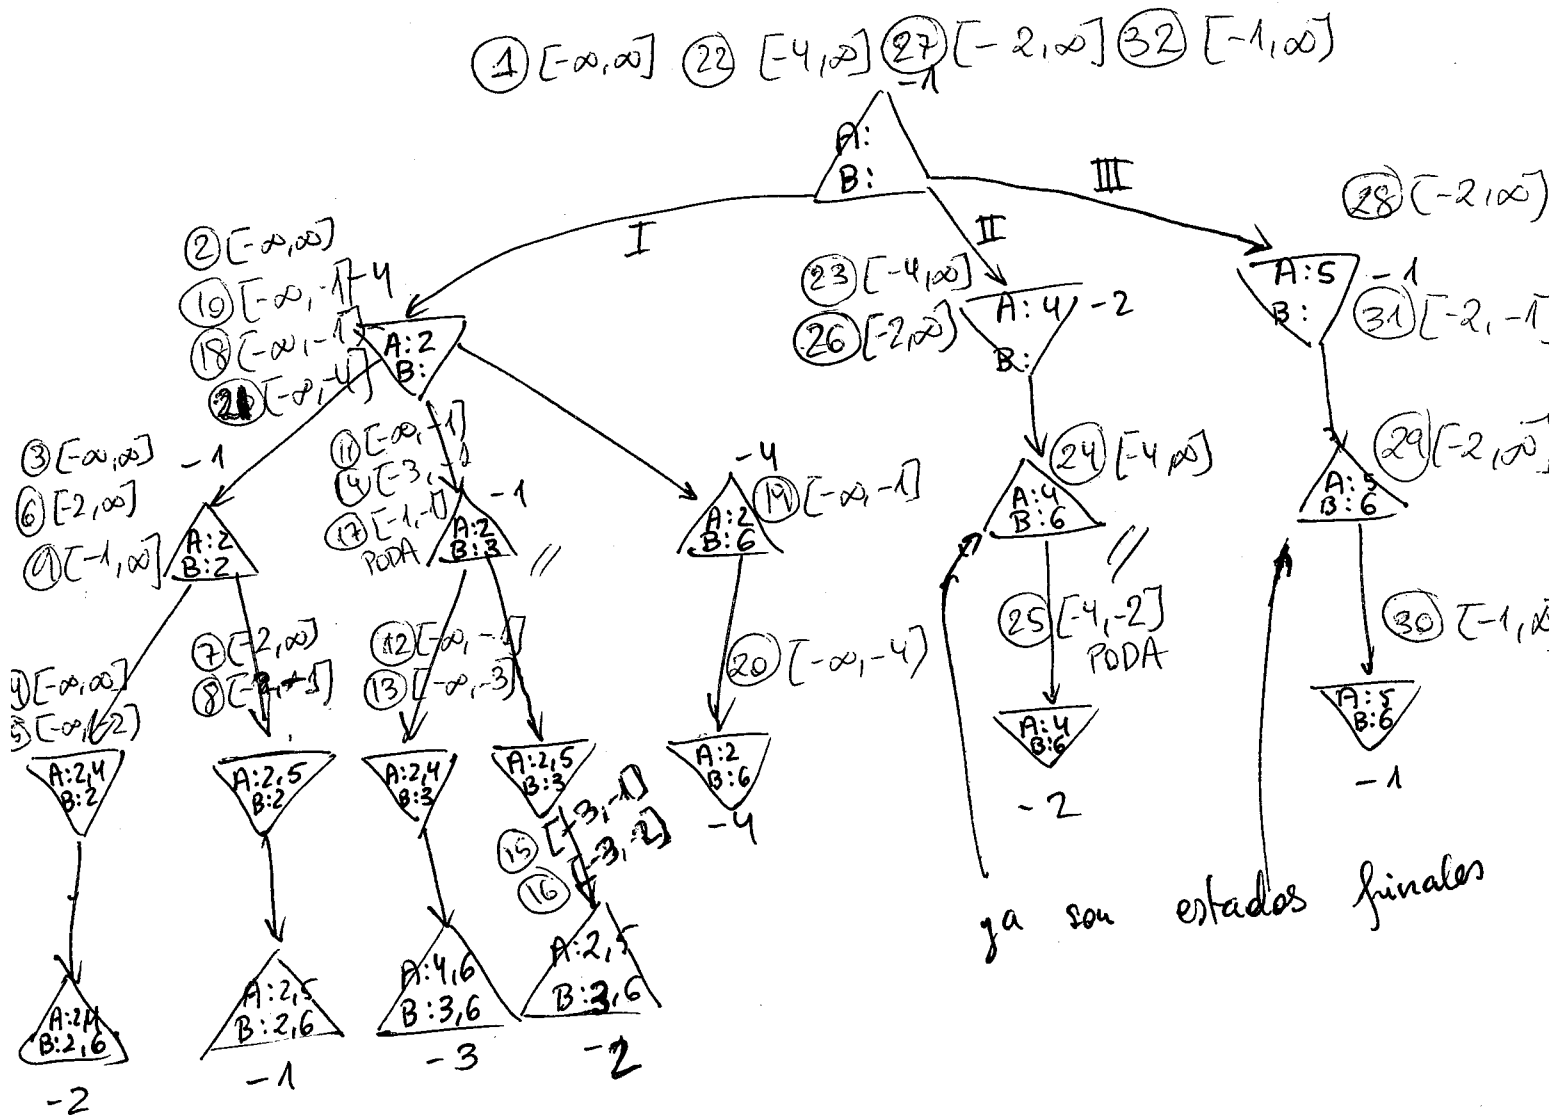 ① [-∞,∞] ㉒ [-4,∞] ㉗ [-2,∞] ㉜ [-1,∞)
-1
A:
B:
I
II
III
② [-∞,∞]
⑩ [-∞,-1] -4
⑱ [-∞,-1]
㉑ [-∞,-4]
A:2
B:
㉓ [-4,∞]
㉖ [-2,∞]
A:4 -2
B:
㉘ [-2,∞)
A:5 -1
B:
㉛ [-2,-1]
③ [-∞,∞] -1
⑥ [-2,∞]
⑨ [-1,∞]
A:2
B:2
⑪ [-∞,-1]
[-3,-1]
⑰ [-1,-1]
PODA
-1
A:2
B:3
//
-4
⑲ [-∞,-1]
A:2
B:6
㉔ [-4,∞]
A:4
B:6
//
㉙ [-2,∞]
A:5
B:6
[-∞,∞]
[-∞,-2)
⑦ [-2,∞]
⑧
⑫ [-∞,-1]
⑬ [-∞,-3]
⑳ [-∞,-4)
㉕ [-4,-2]
PODA
㉚ [-1,∞
A:2,4
B:2
A:2,5
B:2
A:2,4
B:3
A:2,5
B:3
A:2
B:6
-4
A:4
B:6
-2
A:5
B:6
-1
⑮ [-3,-1]
⑯ [-3,-2]
ya son estados finales
A:2,4
B:2,6
-2
A:2,5
B:2,6
-1
A:4,6
B:3,6
-3
A:2,5
B:3,6
-2